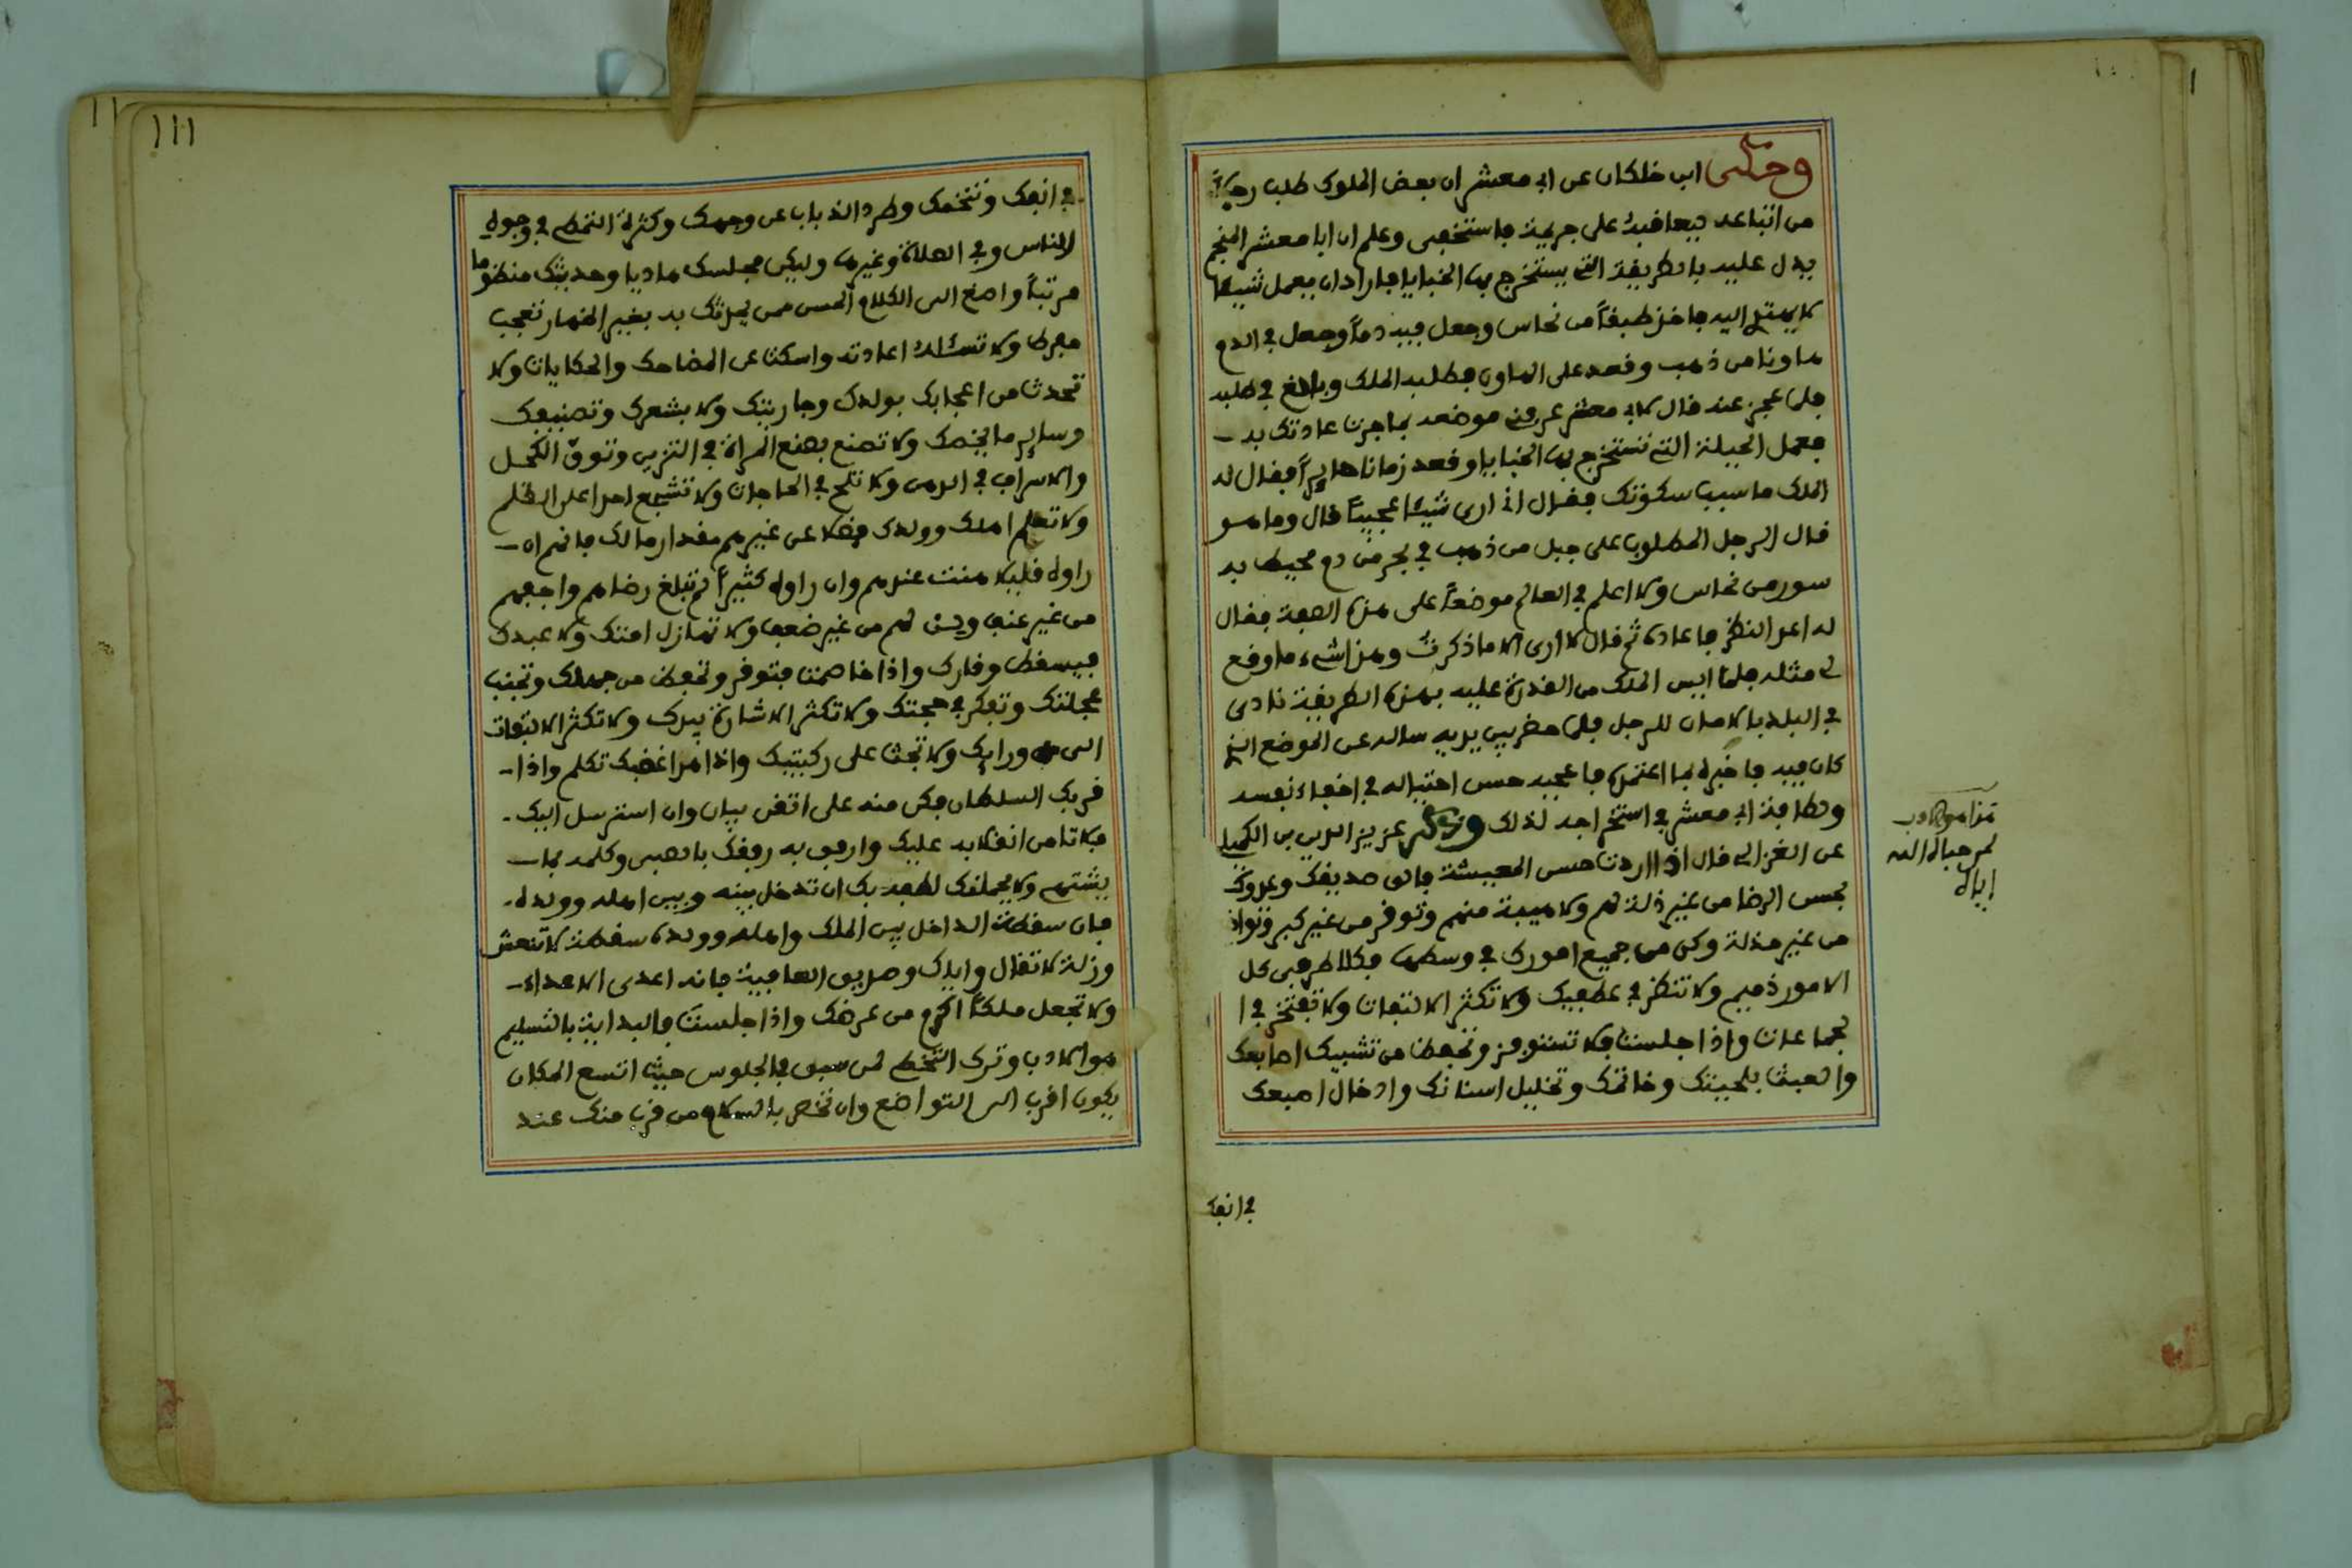 وحكى ابن خلكان عن ابي معشر ان بعض الملوك طلب رجلاً
من اتباعه ليعاقبه على جريمة فاستخفى وعلم ان ابا معشر المنجم
يدل عليه بالطريقة التي يستخرج بها الخبايا فاراد ان يعمل شيئا
لا يهتدي اليه فاخذ طستاً من نحاس وجعل فيه دماً وجعل في الدم
هاونا من ذهب وقعد على الهاون فطلبه الملك وبالغ في طلبه
فلما عجز عنه قال لابي معشر عرفني موضعه بما جرت عادتك به
فعمل الحيلة التي تستخرج بها الخبايا وقعد زمانا حايراً فقال له
الملك ما سبب سكوتك فقال اني ارى شيئا عجيباً قال وما هو
قال الرجل المطلوب على جبل من ذهب في بحر من دم محيط به
سور من نحاس ولا اعلم في العالم موضعاً على هذه الصفة فقال
له اعد النظر فاعاده ثم قال لا ارى الا ما ذكرت وهذا شيء ما وقع
لي مثله فلما ايس الملك من القدرة عليه بهذه الطريقة نادى
في البلد بالامان للرجل فلما حضر بين يديه ساله عن الموضع الذي
كان فيه فاخبره بما اعتمده فاعجبه حسن احتياله في اخفاء نفسه
ولطافة ابي معشر في استخراجه لذلك وذكر عزيز الدين بن الكميل
عن الغزالي قال اذا اردت حسن المعيشة فالق صديقك وعدوك
بحسن الرضا من غير ذلة لهم ولا هيبة منهم وتوقر من غير كبر وتواضع
من غير مذلة وكن من جميع امورك في وسطها فكلا طرفي كل
الامور ذميم ولا تنظر في عطفيك ولا تكثر الالتفات ولا تفتخر في ا
لجماعات واذا جلست فلا تستوفز وتحفظ من تشبيك اصابعك
والعبث بلحيتك وخاتمك وتخليل اسنانك وادخال اصبعك
في انفك
لمن حباه الله
في انفك وتنخمك وطرد الذباب عن وجهك وكثرة التمطي في وجوه
الناس وفي الصلاة وغيرها وليكن مجلسك هاديا وحديثك منظوما
مرتباً واصغ الى الكلام الحسن ممن يحدثك به بغير اظهار تعجب
مفرط ولا تسئله اعادته واسكت عن المضاحك والحكايات ولا
تحدث من اعجابك بولدك وجاريتك ولا بشعرك وتصنيفك
وساير ما يخصك ولا تصنع بصنع المراة في التزين وتوق الكحل
والاسراف في الدهن ولا تلح في الحاجات ولا تشجع احدا على الظلم
ولا تعلم اهلك وولدك فضلا عن غيرهم مقدار مالك فانهم ان
راوه قليلا هنت عندهم وان راوه كثيراً لم تبلغ رضاهم واجفهم
من غير عنف ولن لهم من غير ضعف ولا تهازل امتك ولا عبدك
فيسقط وقارك واذا خاصمت فتوقر وتحفظ من جهلك وتجنب
عجلتك وتفكر في حجتك ولا تكثر الاشارة بيدك ولا تكثر الالتفات
الى ورايك ولا تجث على ركبتيك واذا هدا غضبك تكلم واذا
قربك السلطان فكن منه على اتقى بيان وان استرسل اليك
فلا تامن انقلابه عليك وارفق به رفقك بالصبي وكلمه بما
يشتهي ولا يحملنك لطفه بك ان تدخل بينه وبين اهله وولده
فان سقطة الداخل بين الملك واهله وولده سقطة لا تنعش
وزلة لا تقال واياك وصديق العافية فانه اعدى الاعداء
ولا تجعل ملكاً اكرم من عرضك واذا جلست فالبداية بالتسليم
هو الادب وترك التخطي لمن سبق في الجلوس حيث اتسع المكان
يكون اقرب الى التواضع وان تخص بالسلام من قرب منك عند
١١١